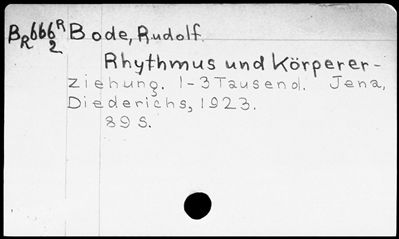 BR666R Bode, Rudolf.
2
Rhythmus und Körperer-
ziehung. 1-3 Tausend. Jena,
Diederichs, 1923.
89 S.